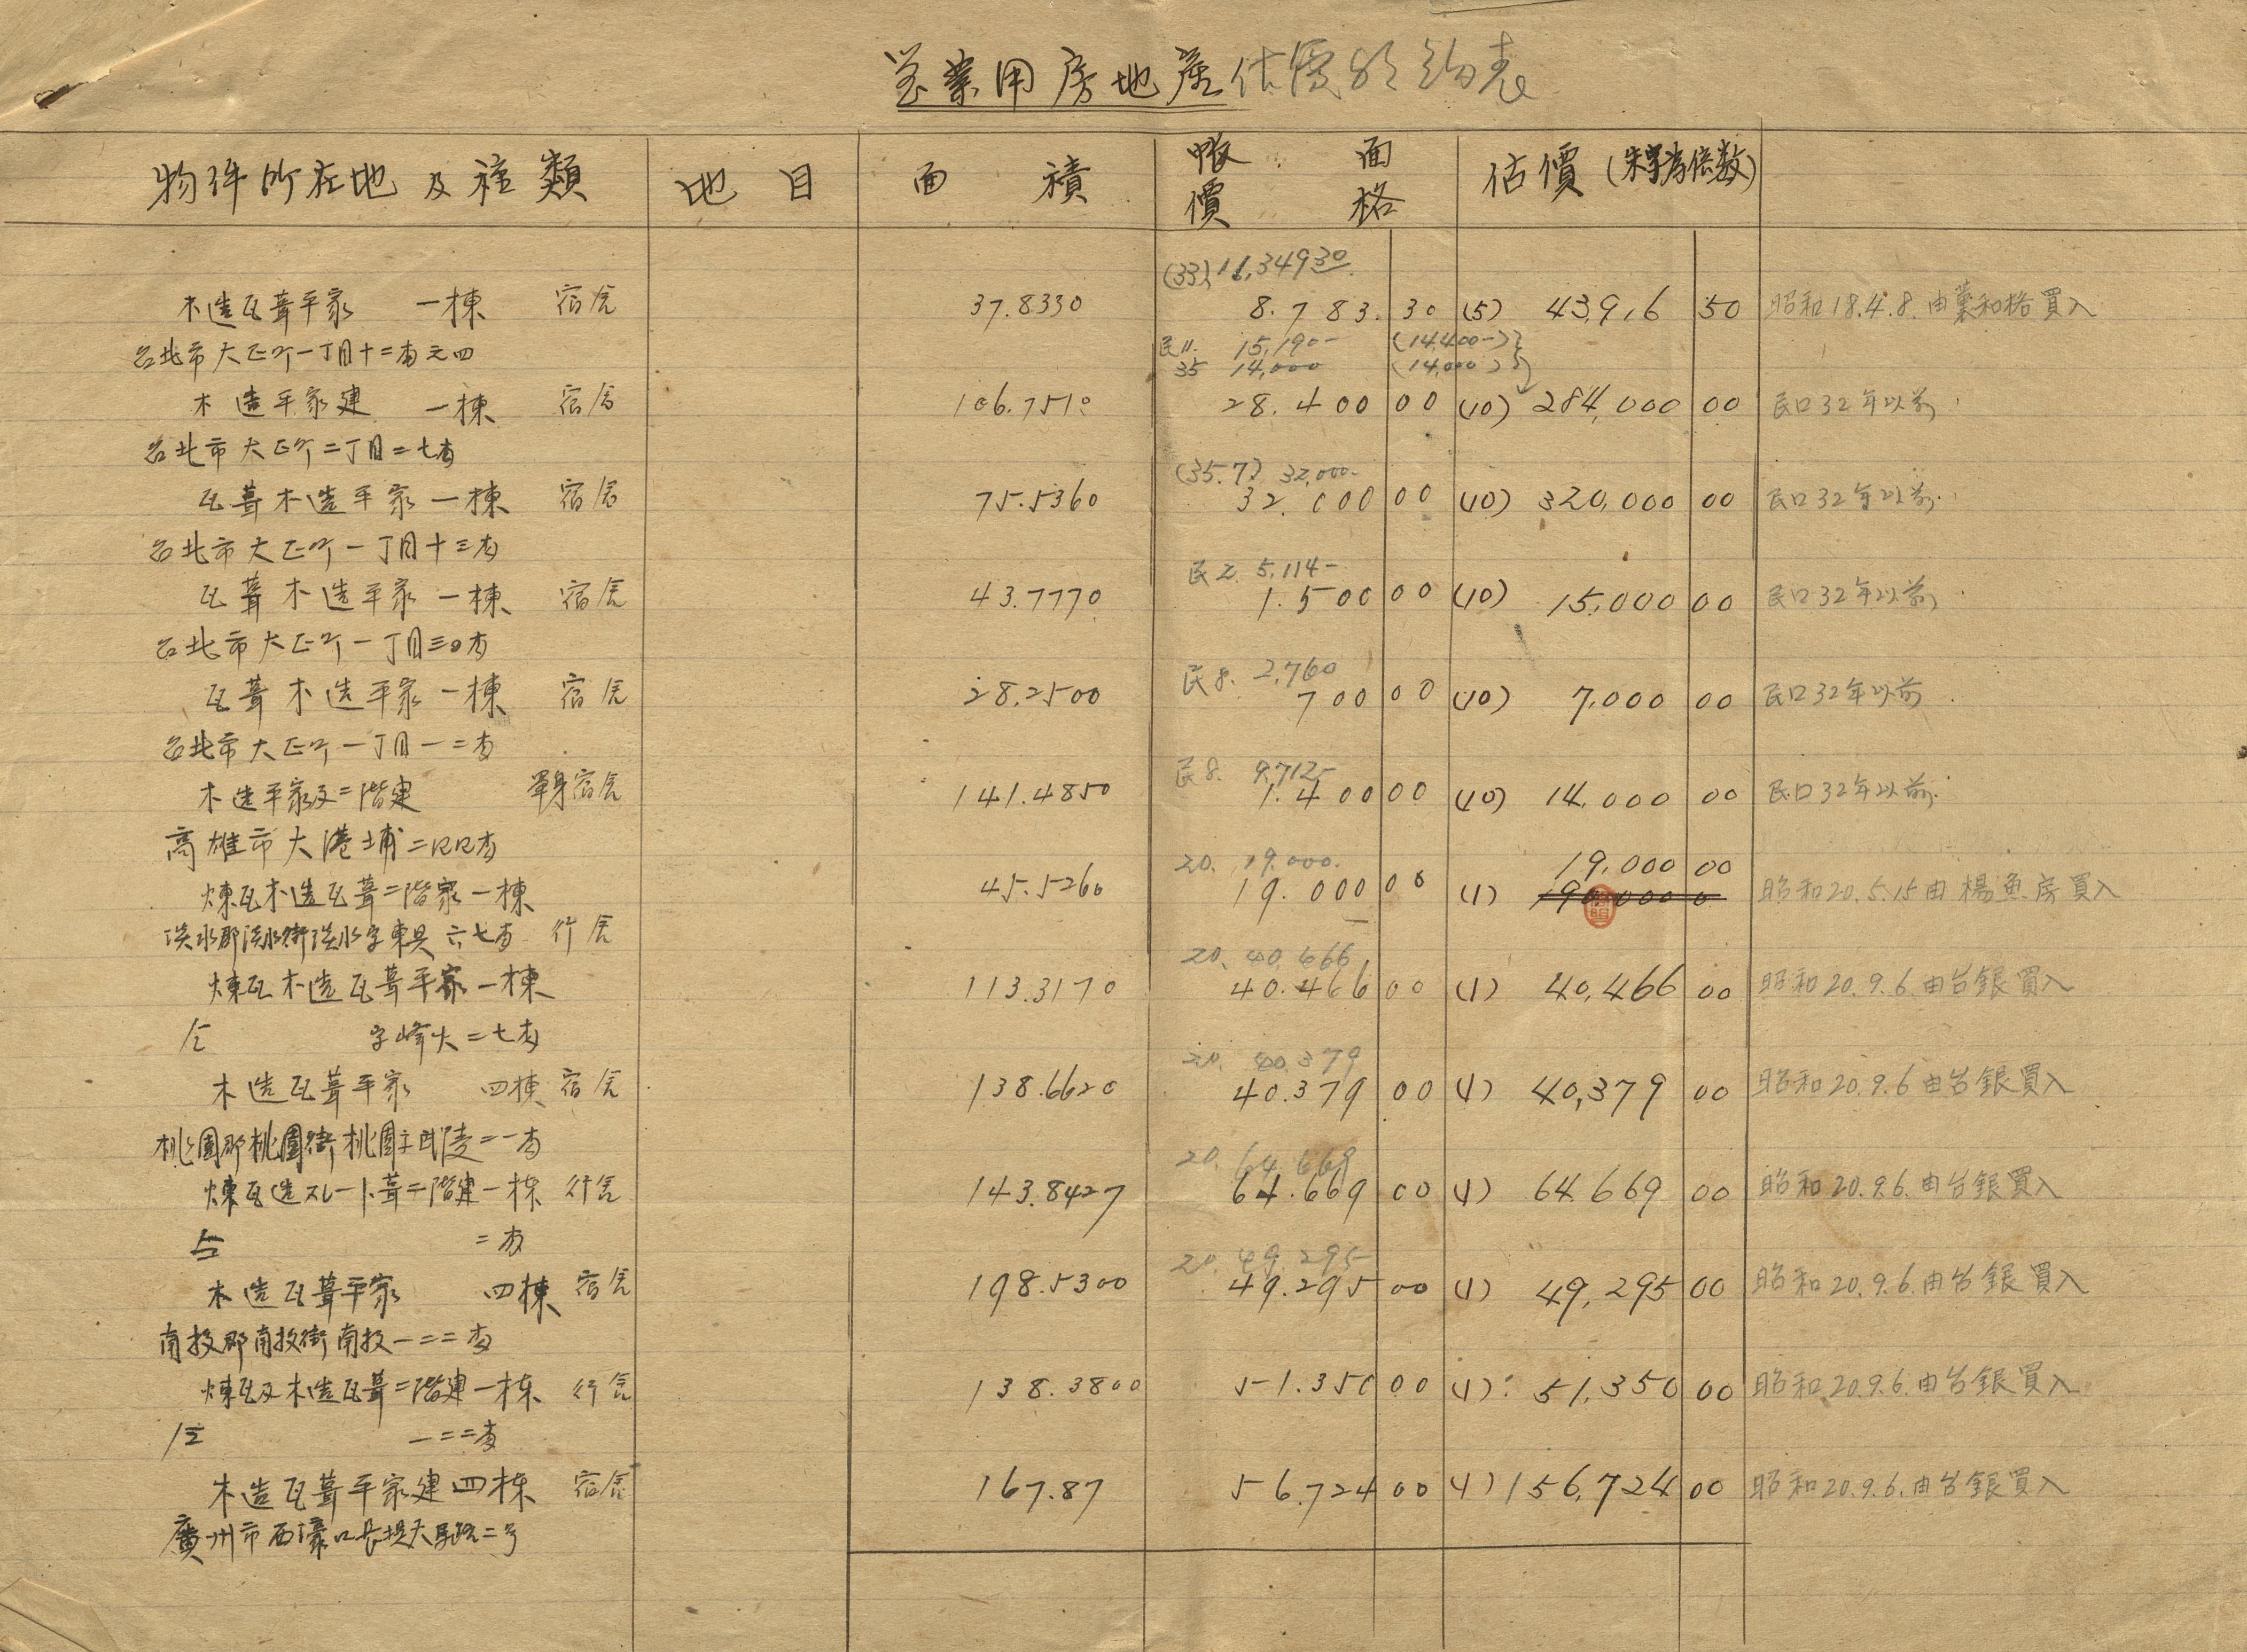 営業用房地產估價明細表
物件所在地及種類 地目 面積 帳面價格 估價(朱字為倍数)
(33) 11,349 30
木造瓦葺平家 一棟 宿舍 37.8330 8.783.30 (5) 439,6 50 昭和18.4.8.由葉和格買入
台北市大正町一丁目十二番元四 民11. 15,190- (14,400-)
35 14,000 (14,000)
木造平家建 一棟 宿舍 106.7510 28.400 00 (10) 284,000 00 民口32年以前
台北市大正町二丁目二七番
(35.7) 32,000-
瓦葺木造平家 一棟 宿舍 75.5360 32.000 00 (10) 320,000 00 民口32年以前
台北市大正町一丁目十三番
民2. 5,114-
瓦葺木造平家 一棟 宿舍 43.7770 1.500 00 (10) 15,000 00 民口32年以前
台北市大正町一丁目三0番
民8. 2,760
瓦葺木造平家 一棟 宿舍 28.2500 700 00 (10) 7,000 00 民口32年以前
台北市大正町一丁目一二番
民8. 9,712-
木造平家及二階建 單身宿舍 141.4850 1.400 00 (10) 14,000 00 民口32年以前
高雄市大港埔二四四番
20. 19.000. 19,000 00
煉瓦木造瓦葺二階家一棟 45.5260 19.000 00 (1) 190,000 0 昭和20.5.15由楊魚房買入
淡水郡淡水街淡水字東興六七番 行舍
20. 40,466
煉瓦木造瓦葺平家一棟 113.3170 40.466 00 (1) 40,466 00 昭和20.9.6.由台銀買入
仝 字烽火二七番
20. 40.379
木造瓦葺平家 四棟 宿舍 138.6620 40.379 00 (1) 40,379 00 昭和20.9.6由台銀買入
桃園郡桃園街桃園字武陵二一番
20. 64.669
煉瓦造スレート葺二階建一栋 行舍 143.8427 64.669 00 (1) 64.669 00 昭和20.9.6.由台銀買入
仝 二番
20. 49.295
木造瓦葺平家 四棟 宿舍 198.5300 49.295 00 (1) 49,295 00 昭和20.9.6.由台銀買入
南投郡南投街南投一二二番
煉瓦及木造瓦葺二階建一栋 行舍 138.3800 51.350 00 (1) 51,350 00 昭和20.9.6.由台銀買入
仝 一二二番
木造瓦葺平家建四栋 宿舍 167.87 56.724 00 (1) 156,724 00 昭和20.9.6.由台銀買入
廣州市西濠口長堤大馬路二号